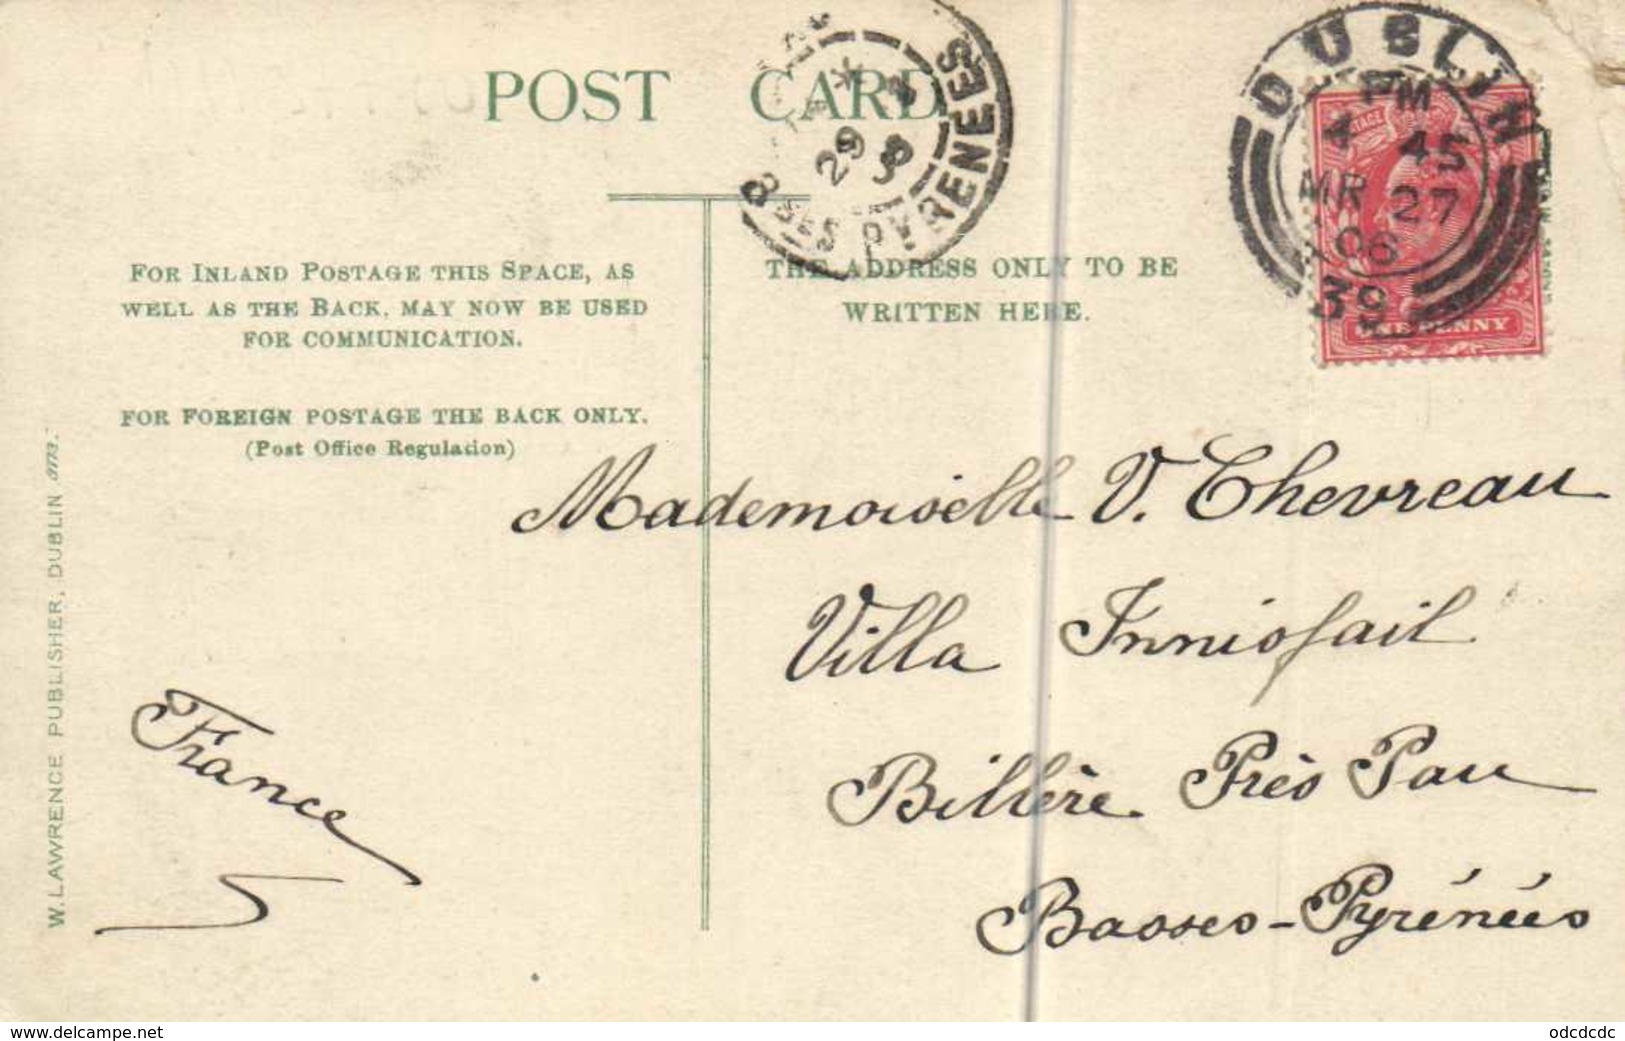 POST CARD
BSES PYRENEES
29 3
DUBLIN
PM
4 45
MR 27
06
39
ONE PENNY
FOR INLAND POSTAGE THIS SPACE, AS
WELL AS THE BACK, MAY NOW BE USED
FOR COMMUNICATION.
THE ADDRESS ONLY TO BE
WRITTEN HERE.
FOR FOREIGN POSTAGE THE BACK ONLY.
(Post Office Regulation)
Mademoiselle V. Chevreau
Villa Innisfail
Billère Près Pau
Basses-Pyrénées
France
W. LAWRENCE PUBLISHER, DUBLIN
www.delcampe.net
odcdcdc